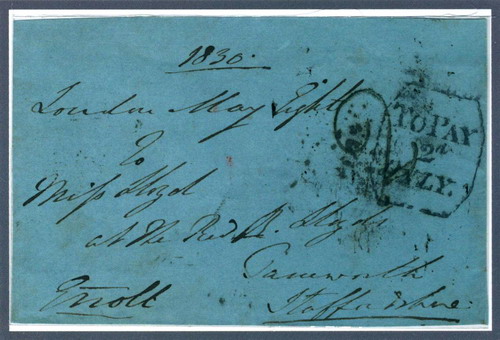 1830.
London May Eight
To
Miss Lloyd
at the Revd. R. Lloyds
Tamworth
Staffordshire.
Erroll
TO PAY
2d
ONLY.